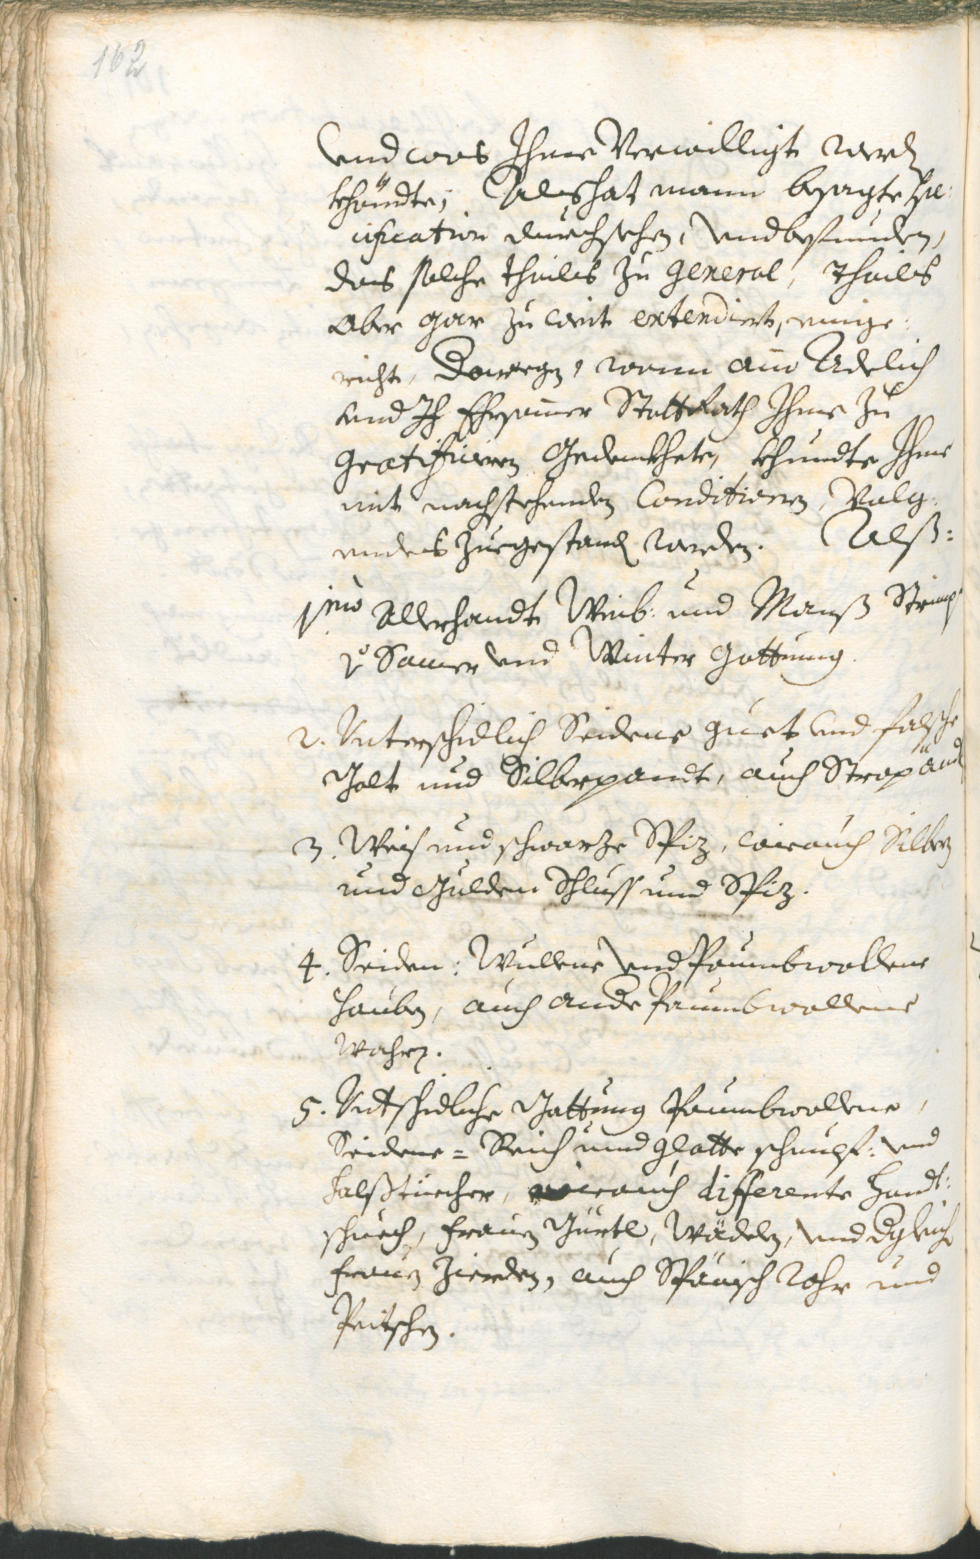 162
und was Ihme Verwilligt werd
khöndte; Als hat mann besagte spe:
cification durchsehen, und befunden,
das solche theils zu general, theils
aber gar zu weit extendiert, einge:
richt, Derwegen, wann ain Adelich
und Ehrsamer StattRath Ihme zu
gratificiern Gedenkhete, khundte Ihme
mit nachstehenden Conditionen, Volg:
endes zuegestand werden. Alß:
1mo Allerhandt Weib: und Manß Strimpf
Somer und Winter Gattung.
2. Unterschidlich Seidene guet und falsche
Golt und Silberpandt, auch Strapänd
3. Weis und schwarze Spiz, wie auch Silber
und Gulden Schluss und Spiz.
4. Seiden: Wullene und Paumbwollene
Hauben, auch ande Paumbwollene
Wahrn.
5. Untschidliche Gattung Paumbwollene,
Seidene = Reich und glatte schnupf: und
Halßtüecher, wie auch differente Handt:
schuech, Frauen Gürtl, Wädeln, und dgleich
Frauen Zierden, auch Spänisch Rohr und
Peitschen.